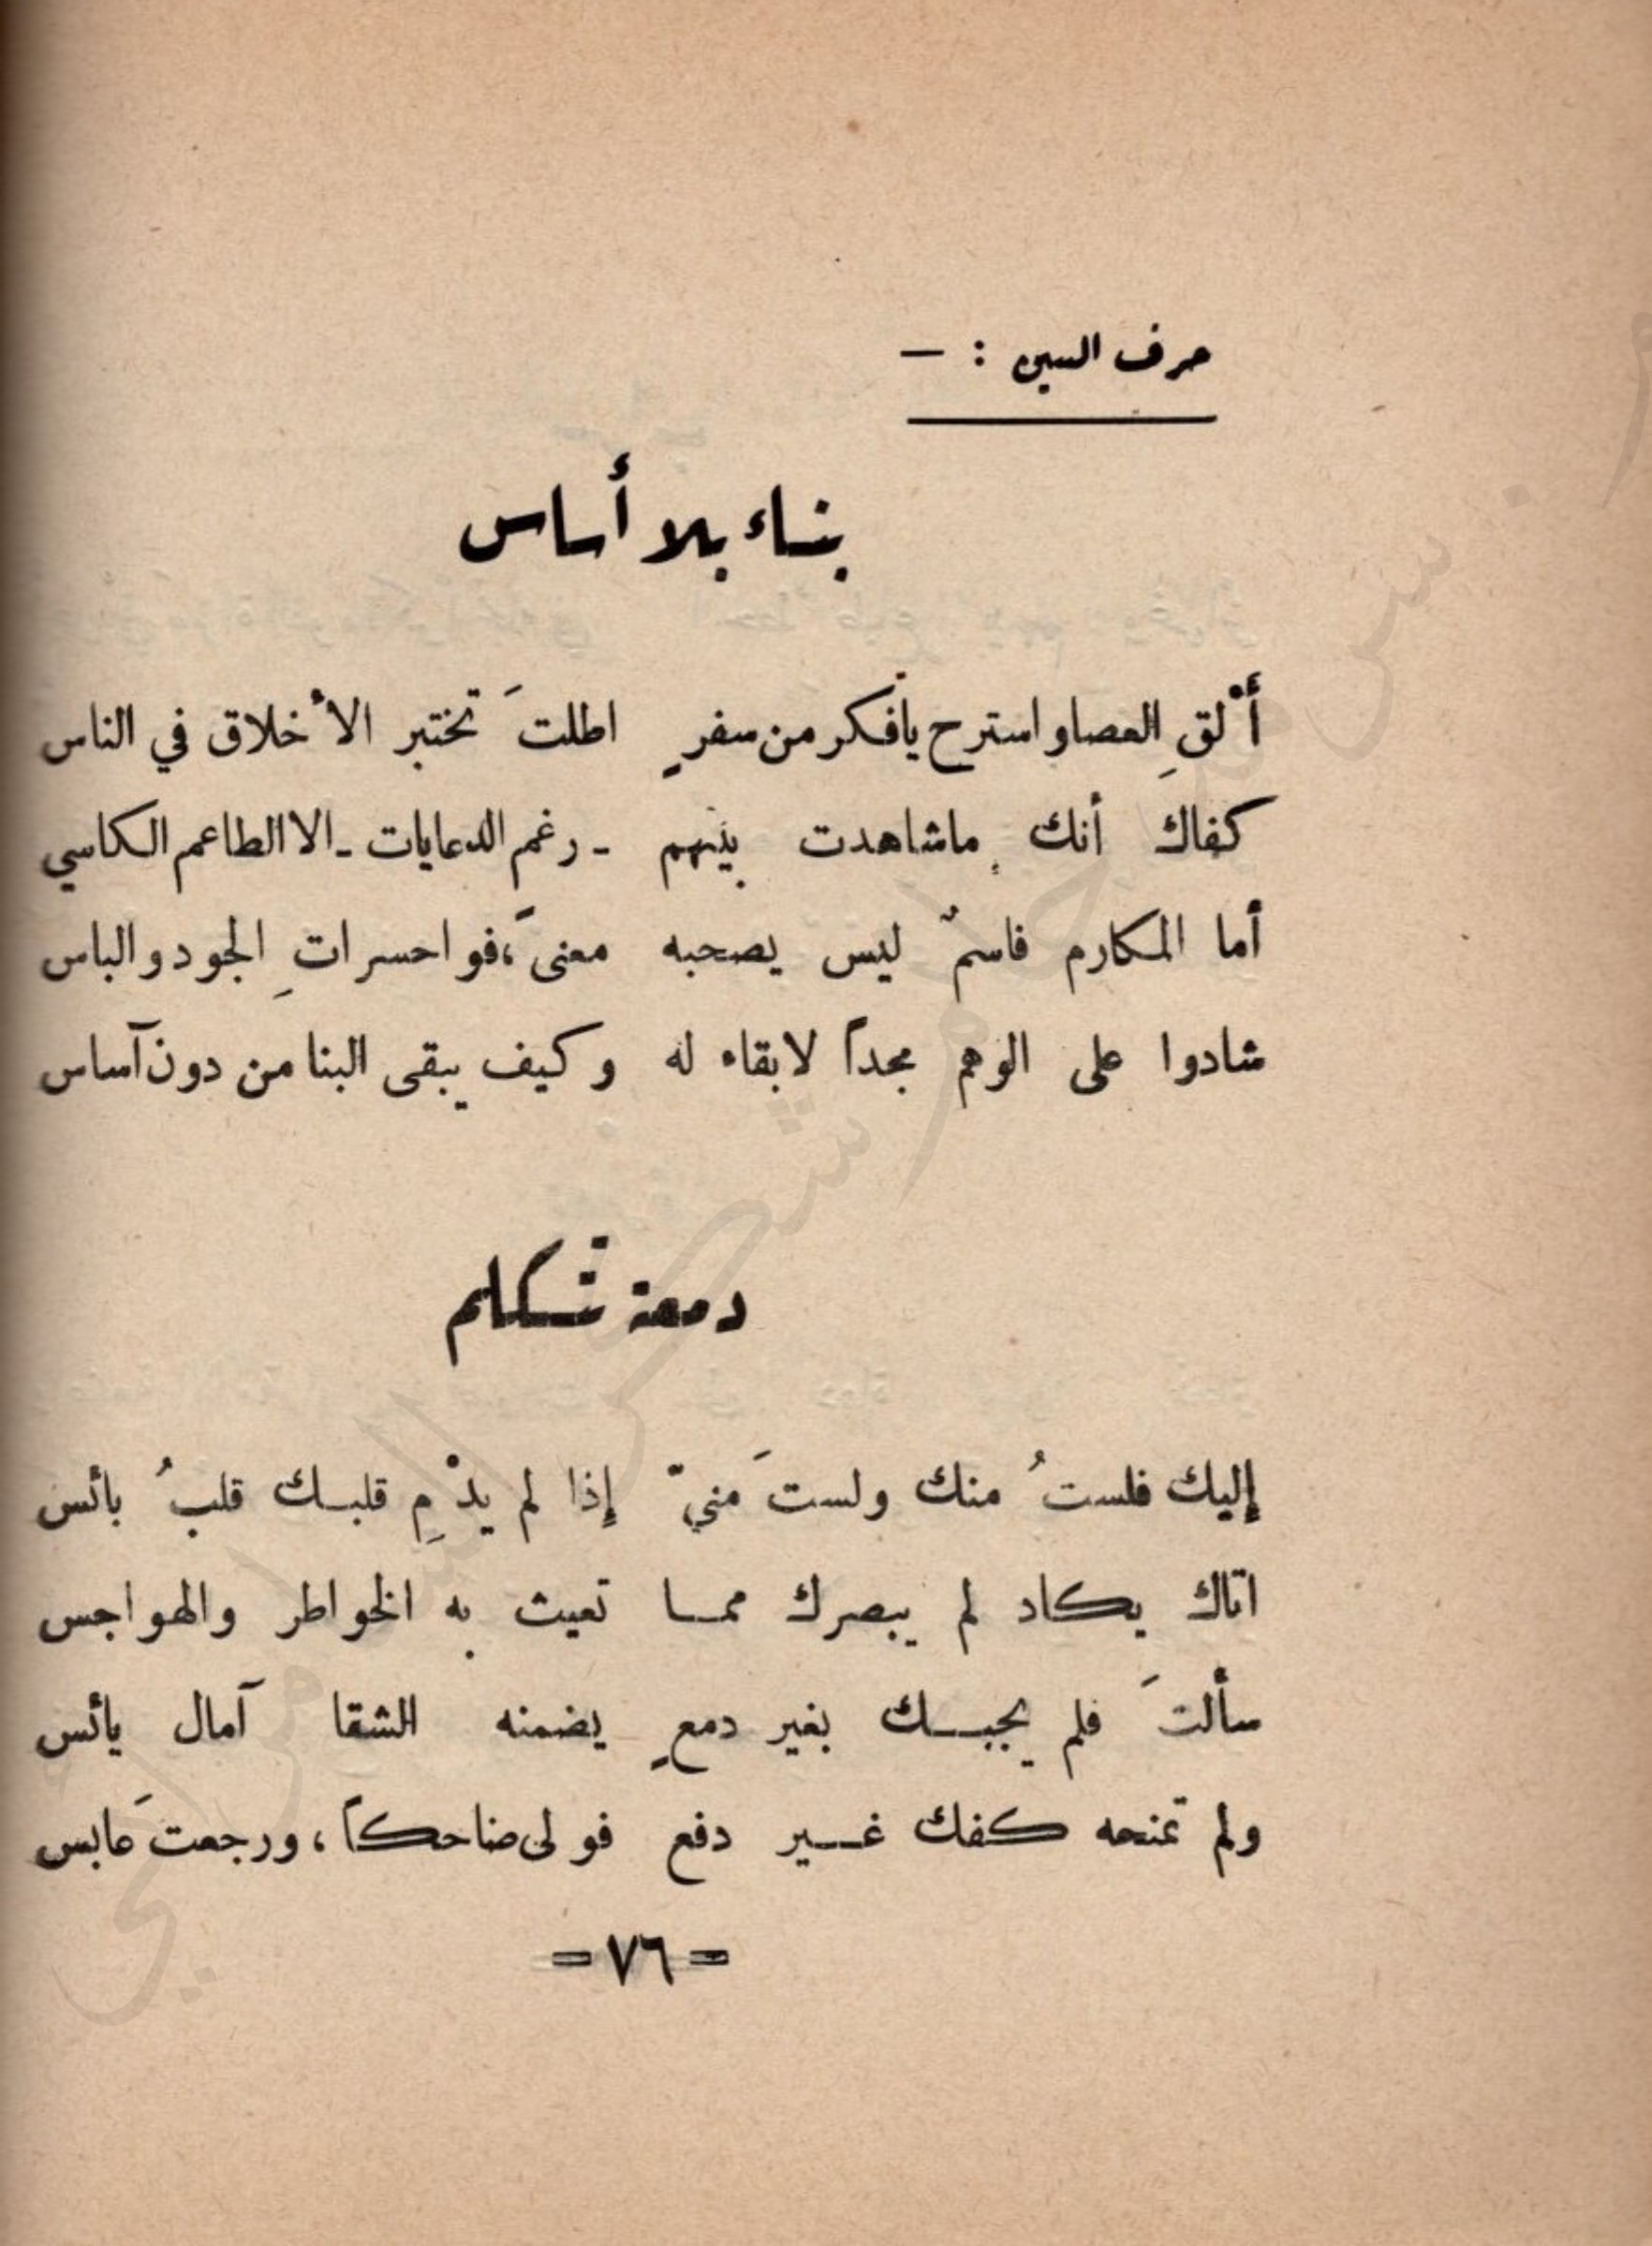 حرف السين : —
بناء بلا أساس
أْلقِ العصا واسترح يا فكر من سفرٍ اطلتَ تختبر الأخلاق في الناس
كفاك أنك ما شاهدت بينهم - رغم الدعايات - الا الطاعم الكاسي
أما المكارم فاسمٌ ليس يصحبه معنىً، فواحسراتِ الجود والباس
شادوا على الوهم مجداً لا بقاء له وكيف يبقى البنا من دون آساس
دمعة تتكلم
إليك فلستُ منك ولستَ منيّ إذا لم يدْمِ قلبك قلبُ بائس
اتاك يكاد لم يبصرك مما تعيث به الخواطر والهواجس
سألتَ فلم يجبك بغير دمعٍ يضمنه الشقا آمال يائس
ولم تمنحه كفك غير دفع فولى ضاحكاً، ورجعتَ عابس
= ٧٦ =